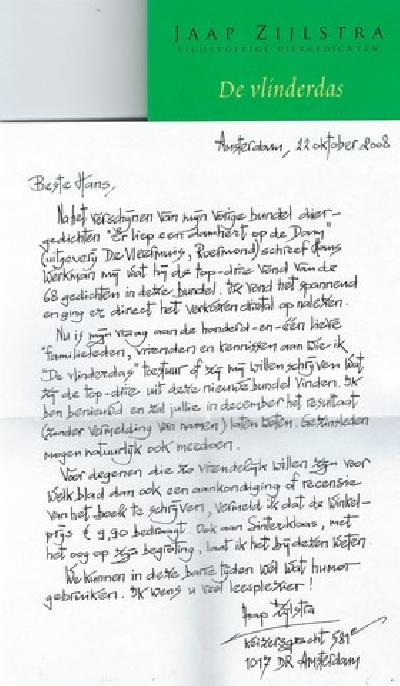 JAAP ZIJLSTRA
LICHTVOETIGE DIERGEDICHTEN
De vlinderdas
Amsterdam, 22 oktober 2008
Beste Hans,
Na het verschijnen van mijn vorige bundel dier-
gedichten "Er liep een damhert op de Dam"
(uitgeverij De Vleermuis, Roermond) schreef Hans
Werkman mij wat hij de top-drie vond van de
68 gedichten in deze bundel. Ik vond het spannend
en ging er direct het verkoren drietal op nalezen.
Nu is mijn vraag aan de honderd-en-één lieve
familieleden, vrienden en kennissen aan wie ik
"De vlinderdas" toestuur of zij mij willen schrijven wat
zij de top-drie uit deze nieuwe bundel vinden. Ik
ben benieuwd en zal jullie in december het resultaat
(zonder vermelding van namen) laten weten. Gezinsleden
mogen natuurlijk ook meedoen.
Voor degenen die zo vriendelijk willen zijn voor
welk blad dan ook een aankondiging of recensie
van het boek te schrijven, vermeld ik dat de winkel-
prijs € 9,90 bedraagt. Ook aan Sinterklaas, met
het oog op zijn begroting, laat ik het bij dezen weten.
We kunnen in deze barre tijden wel wat humor
gebruiken. Ik wens u veel leesplezier!
Jaap Zijlstra
Keizersgracht 581e
1017 DR Amsterdam